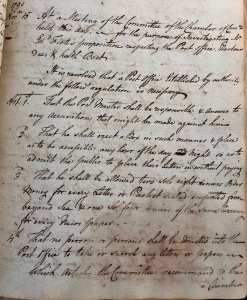 1791
Nov 15 At a Meeting of the Committee of the Chamber of
held this day for the purpose of
proposition respecting the Post office,
& hath Best.
It is resolved that a Post office Established by authority
under the follow.g regulation is necessary
Art. 1 That the Post Master shall be responsible & answer to
any accusations that might be made against him
2 That he shall erect a Box in such manner & place
as to be accessible any hour of the day or Night so as to
admit the publick to place their letters in without paying
3 That he shall be allowed two sols eight
Money for every Letter or Packet
beyond Sea & one Sol four of the same
for every News Paper
4 That no person or persons shall be admitted into the
Post office to take or search any letters or papers
Which Articles the Committee recommend to the
Chamber